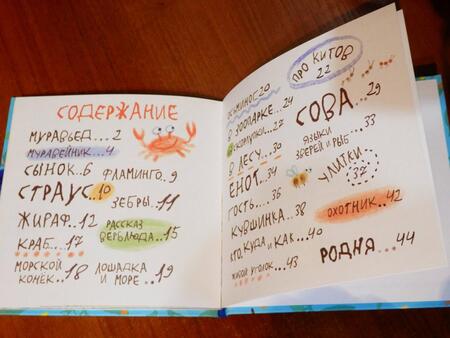 СОДЕРЖАНИЕ
МУРАВЬЕД...2
МУРАВЕЙНИК...4
СЫНОК..6
ФЛАМИНГО.9
СТРАУС..10
ЗЕБРЫ..11
ЖИРАФ..12
РАССКАЗ
ВЕРБЛЮДА..15
КРАБ...17
МОРСКОЙ
КОНЁК..18
ЛОШАДКА
И МОРЕ...19
ОСЬМИНОГ 20
ПРО КИТОВ
22
В ЗООПАРКЕ..24
СКОРЛУПКИ..27
СОВА...29
В ЛЕСУ...30
ЯЗЫКИ
ЗВЕРЕЙ И РЫБ...33
ЕНОТ..34
ГОСТЬ...36
УЛИТКИ
37
КУВШИНКА...38
КТО, КУДА И КАК..40
ОХОТНИК...42
ЖИВОЙ УГОЛОК..43
РОДНЯ...44